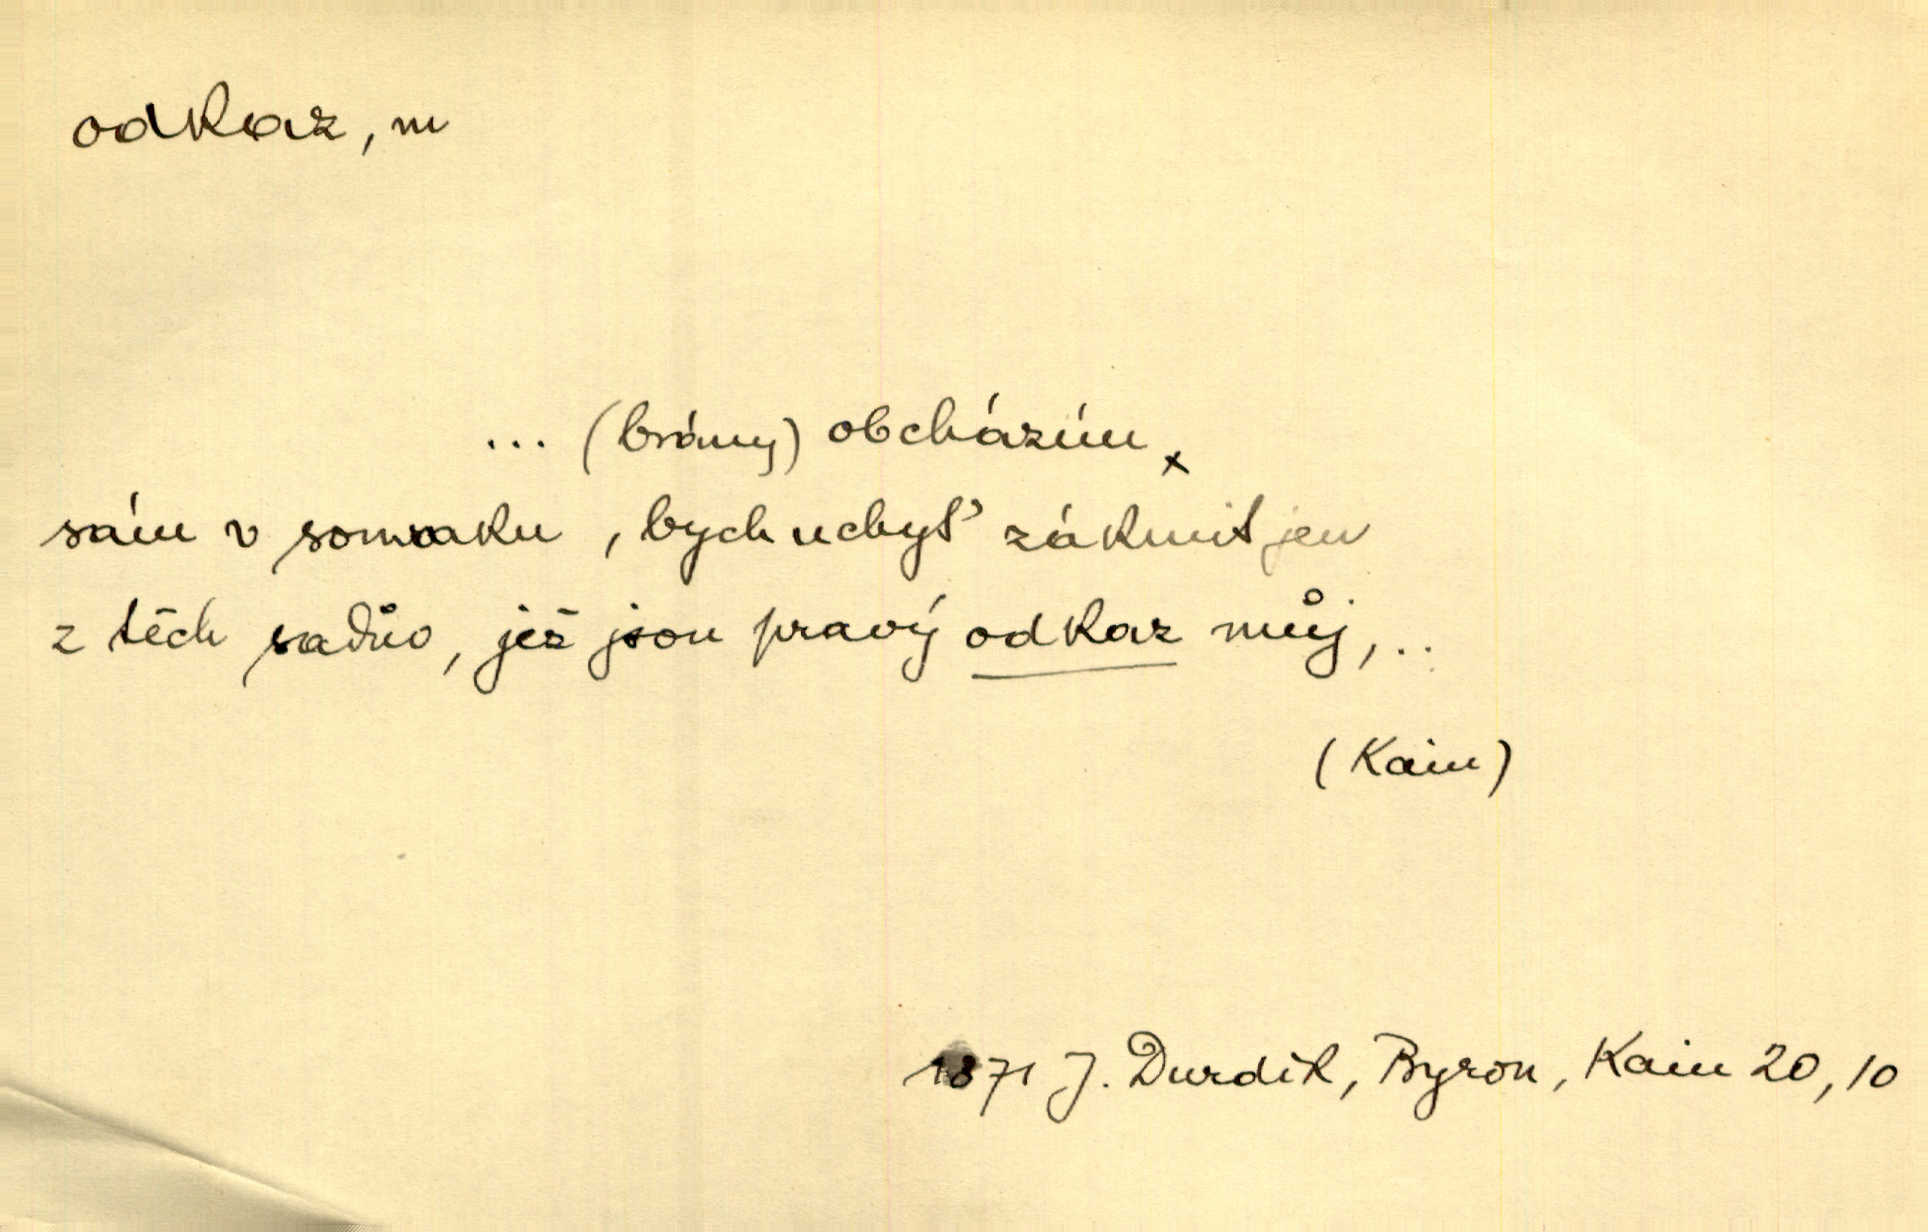 odkaz, m
... (brány) obcházím
sám v somraku, bych uchyt' zákmit jen
z těch sadův, jež jsou pravý odkaz můj,..
(Kain)
1871 J. Durdík, Byron, Kain 20, 10